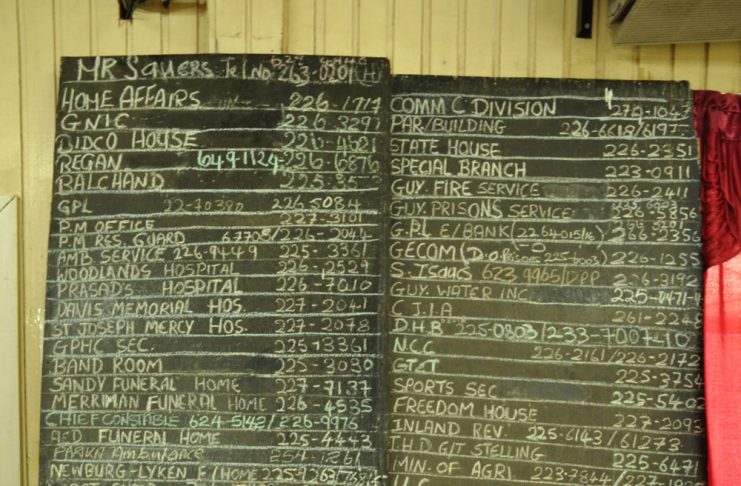 MR SAUERS Tel No 263-0201 (H)
HOME AFFAIRS 226-1717
GNIC 226-3297
DIDCO HOUSE 226-4621
REGAN 649-1124-226-6876
BALCHAND 225-85
GPL 22-70380 226-5084
P.M OFFICE 227-3101
P.M RES. GUARD 226-2044
AMB SERVICE 226-9449 225-3361
WOODLANDS HOSPITAL 226-2529
PRASAD'S HOSPITAL 226-7010
DAVIS MEMORIAL HOS. 227-2041
ST JOSEPH MERCY HOS. 227-2078
GPHC SEC. 225-3361
BAND ROOM 225-3030
SANDY FUNERAL HOME 227-7137
MERRIMAN FUNERAL HOME 226-4535
CHIEF CONSTABLE 624-5142/226-9976
FUNERAL HOME 225-4443
PARKA Ambulance 254-1261
NEWBURG-LYKEN F/HOME
COMM C DIVISION
PAR/BUILDING 226-6618/6197
STATE HOUSE 226-2351
SPECIAL BRANCH 223-0911
GUY. FIRE SERVICE 226-2411
GUY. PRISONS SERVICE 226-5856
G.P.L E/BANK (2264015/16) 266-2356
GECOM 226-1255
S. ISAACS 623 9965/DPP 226-2192
GUY. WATER INC. 225-0471-4
C.J.I.A 261-2228
D.H.B 225-0803/233-7007410
NCC 226-2161/226-2172
GT&T 225-3754
SPORTS SEC 225-5402
FREEDOM HOUSE 227-2093
INLAND REV. 225-6143/61273
T.H.D G/T STELLING 225-6471
MIN. OF AGRI 223-7844